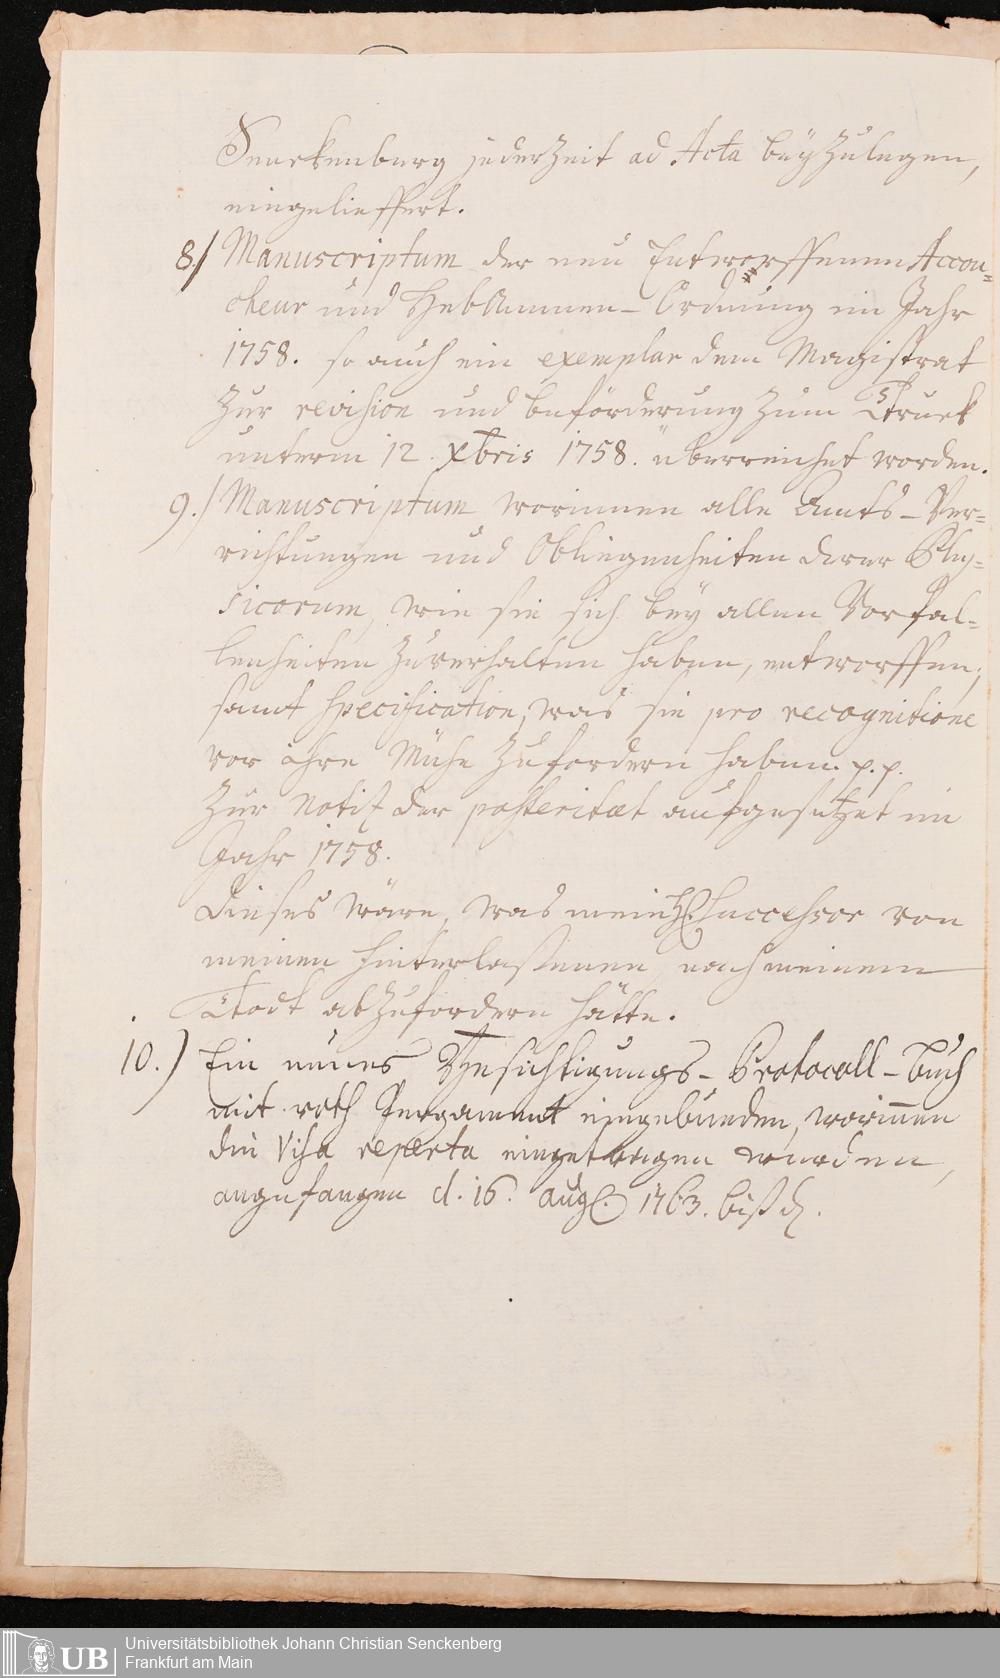 Senckenburg jederzeit ad Acta beÿzulegen,
eingelieffert.
8./ Manuscriptum der neu Entworffenen Accou=
cheur und HebAmmen-Ordnung im Jahr
1758. so auch ein exemplar dem Magistrat
zur revision und beförderung zum Druck
unterm 12. Xbris 1758. überreichet worden.
9./ Manuscriptum worinnen alle Amts-Ver=
richtungen und Obliegenheiten derer Phy=
sicorum, wie sie sich beÿ allen Vorfal=
lenheiten zuverhalten haben, entworffen,
samt specification, was sie pro recognitione
vor ihre Mühe zufordern haben. p. p.
Zur Notiz der posteritæt aufgesetzet im
Jahr 1758.
Dieses wäre, was mein H. Successor von
meinen Hinterlaßenen nach meinem
Todt abzufordern hätte.
10.) Ein neues Besichtigungs-Protocoll-Buch
mit roth Pergament eingebunden, worinnen
die Visa reperta eingetragen wurden,
angefangen d. 16. Aug. 1763. biß d.
UB Universitätsbibliothek Johann Christian Senckenberg
Frankfurt am Main